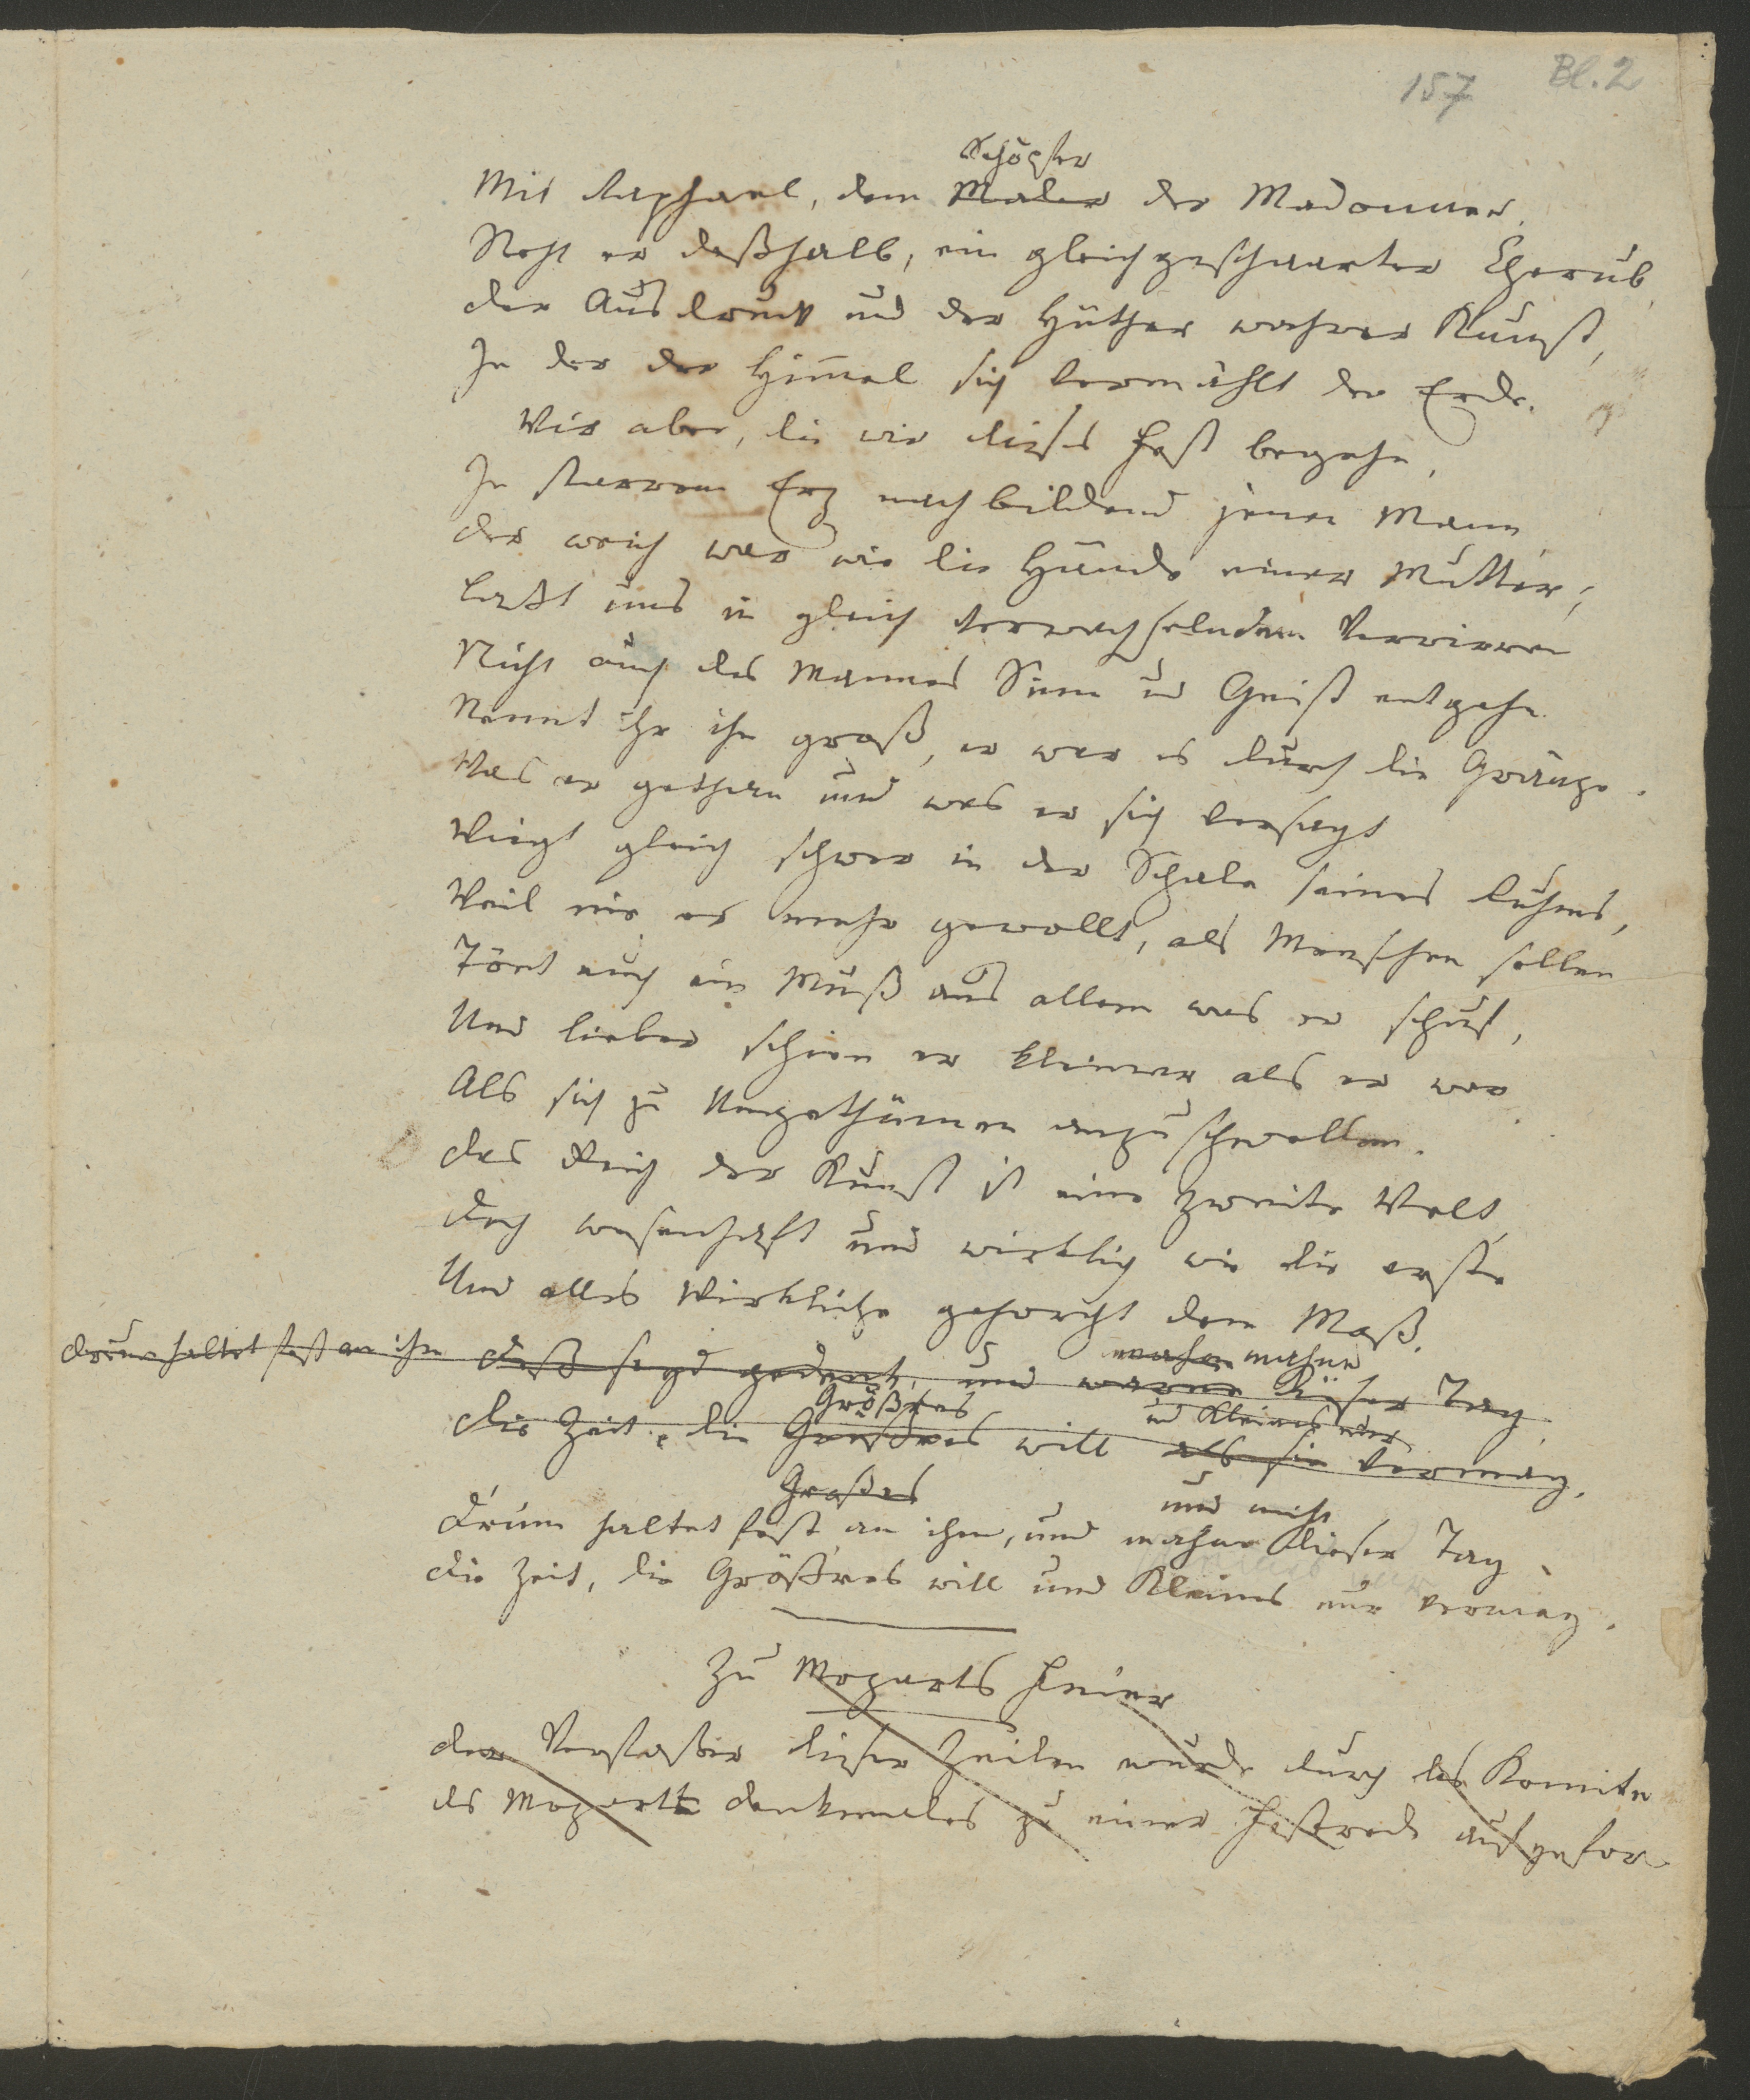 157 Bl. 2
Schöpfer
Mit Raphael, dem Maler der Madonnen,
Steht er deßhalb, ein gleichgeschaarter Cherub,
Der Ausdruck und der Hüther wahrer Kunst,
In der der Himmel sich vermählt der Erde.
Wir aber, die wir dieses Fest begehn,
In starrem Erz nachbildend jenen Mann
Der weich war wie die Hände einer Mutter;
Laßt uns in gleich verwechselndem Verwirren
Nicht auch des Mannes Sinn und Geist entgehn.
Nennt ihr ihn groß, er war es durch die Gränze.
Was er gethan und was er sich versagt
Wiegt gleich schwer in der Schale seines Ruhms,
Weil nie er mehr gewollt, als Menschen sollen
Tönt auch ein Muß aus allem was er schuf,
Und lieber schien er kleiner als er war
Als sich zu Ungethümen anzuschwellen.
Das Reich der Kunst ist eine zweite Welt,
Doch wesenhaft und wirklich wie die erste
Und alles Wirkliche gehorcht dem Maß.
mahne mahne
Drum haltet fest an ihm Deß seyd gedenk, und warne dieser Tag
Größres und Kleines nur
Die Zeit, die Größres will als sie vermag.
Großes und nicht
Drum haltet fest an ihm, und mahne dieser Tag
Die Zeit, die Größres will und Kleines nur vermag.
Zu Mozarts Feier
Der Verfasser dieser Zeilen wurde durch das Komite
des Mozart Denkmales zu einer Festrede aufgefor-